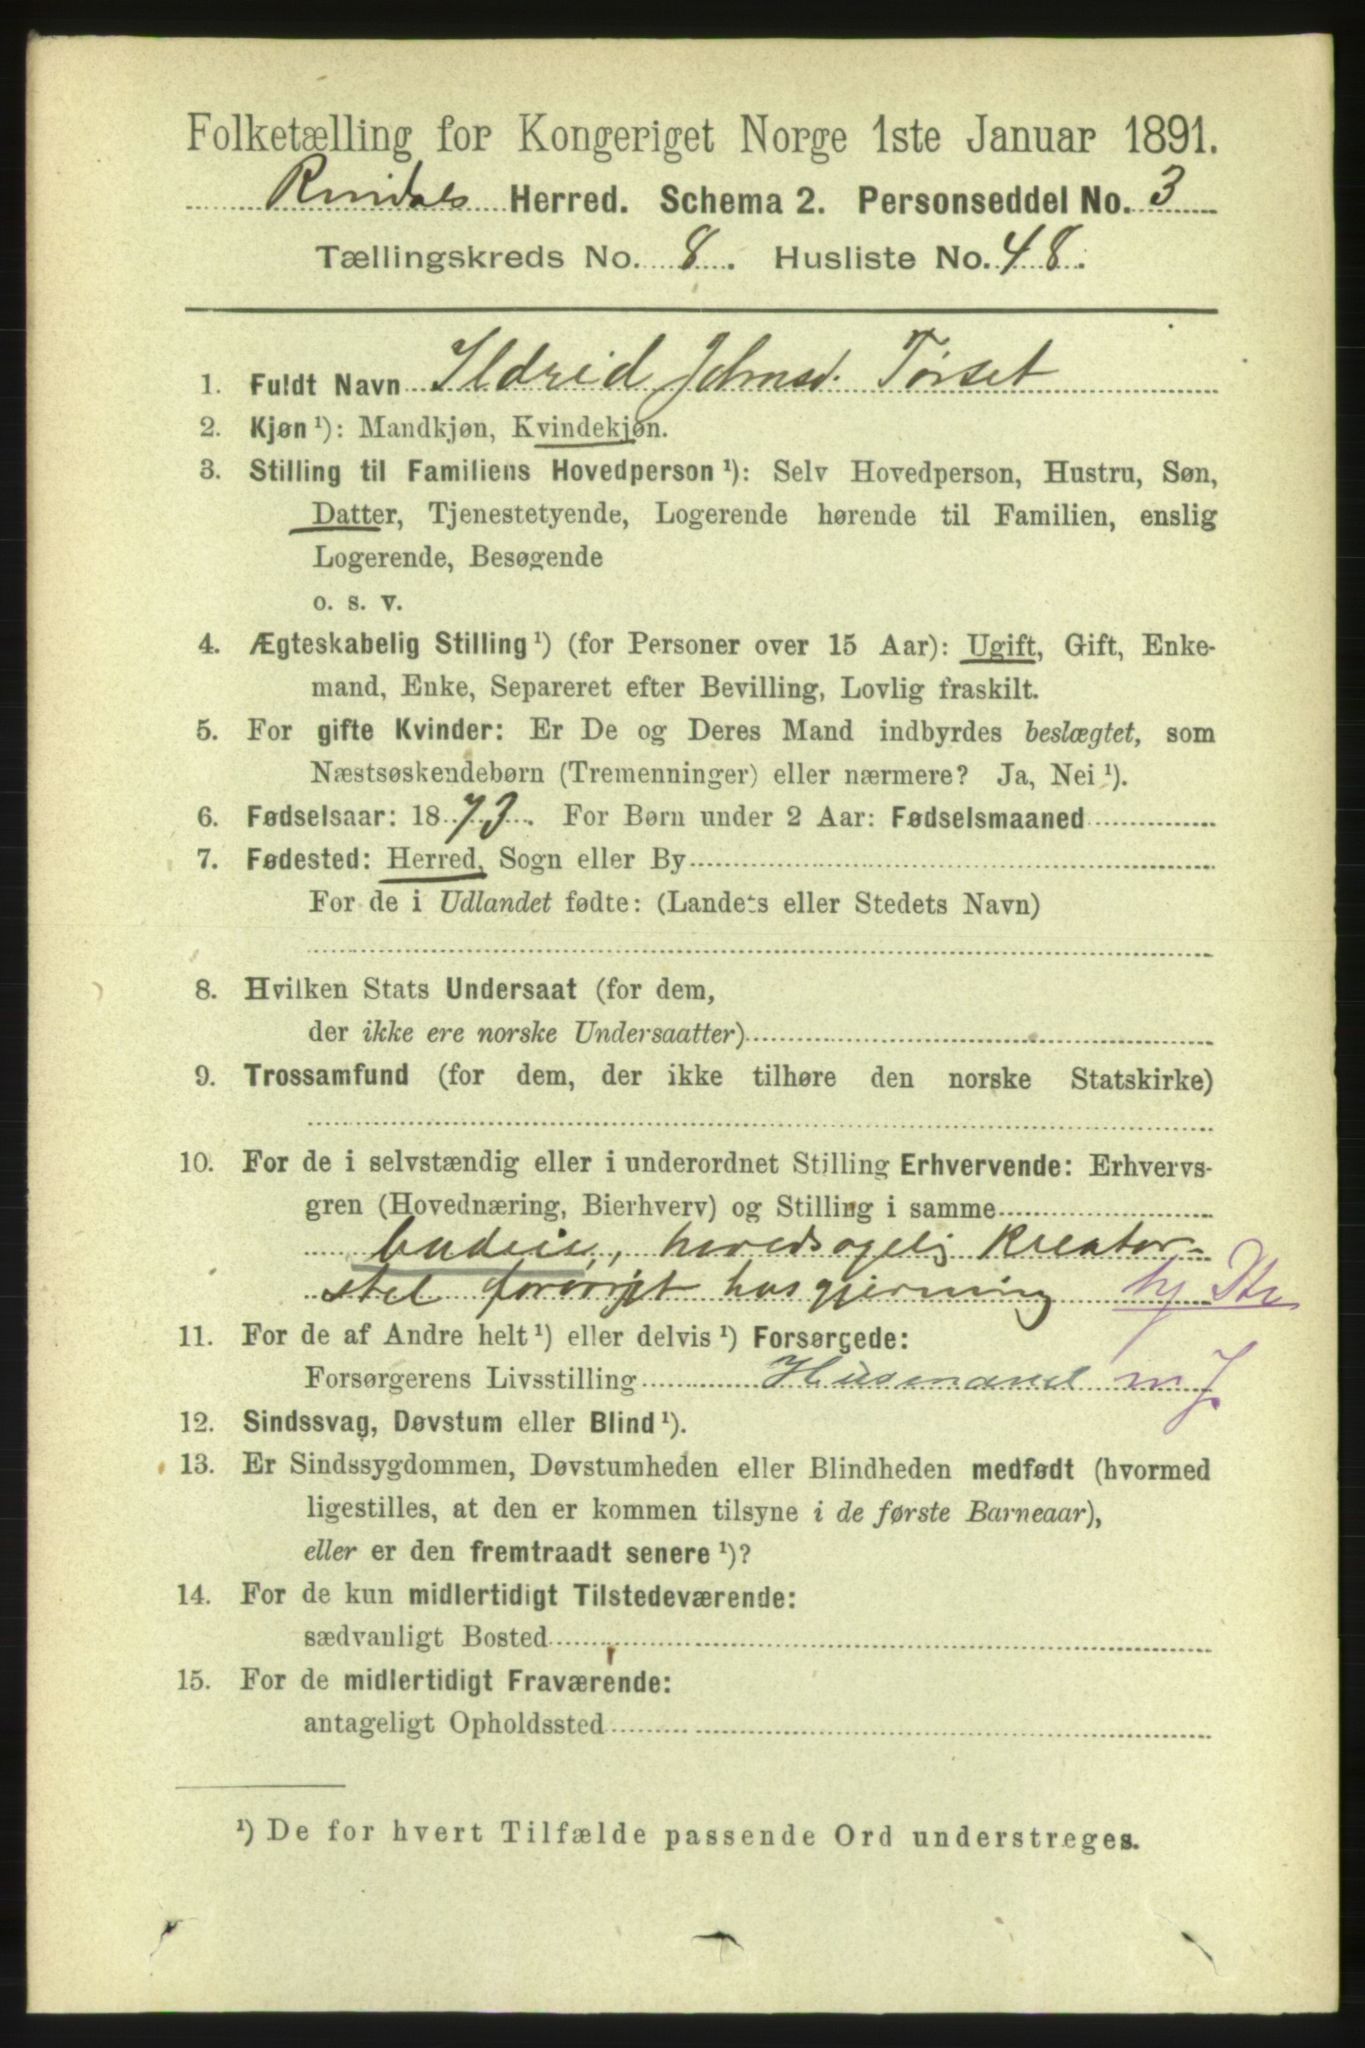 Folketælling for Kongeriget Norge 1ste Januar 1891.
Rindals Herred. Schema 2. Personseddel No. 3
Tællingskreds No. 8. Husliste No. 48.
1. Fuldt Navn Ildrid Johnsd. Tørset
2. Kjøn ¹): Mandkjøn, Kvindekjøn.
3. Stilling til Familiens Hovedperson ¹): Selv Hovedperson, Hustru, Søn,
Datter, Tjenestetyende, Logerende hørende til Familien, enslig
Logerende, Besøgende
o. s. v.
4. Ægteskabelig Stilling ¹) (for Personer over 15 Aar): Ugift, Gift, Enke-
mand, Enke, Separeret efter Bevilling, Lovlig fraskilt.
5. For gifte Kvinder: Er De og Deres Mand indbyrdes beslægtet, som
Næstsøskendebørn (Tremenninger) eller nærmere? Ja, Nei ¹).
6. Fødselsaar: 1873. For Børn under 2 Aar: Fødselsmaaned
7. Fødested: Herred, Sogn eller By
For de i Udlandet fødte: (Landets eller Stedets Navn)
8. Hvilken Stats Undersaat (for dem,
der ikke ere norske Undersaatter)
9. Trossamfund (for dem, der ikke tilhøre den norske Statskirke)
10. For de i selvstændig eller i underordnet Stilling Erhvervende: Erhvervs-
gren (Hovednæring, Bierhverv) og Stilling i samme
budeie, hovedsagelig Kreatur-
stel forøvrigt husgjerning
11. For de af Andre helt ¹) eller delvis ¹) Forsørgede:
Forsørgerens Livsstilling Husmand m J.
12. Sindssvag, Døvstum eller Blind ¹).
13. Er Sindssygdommen, Døvstumheden eller Blindheden medfødt (hvormed
ligestilles, at den er kommen tilsyne i de første Barneaar),
eller er den fremtraadt senere ¹)?
14. For de kun midlertidigt Tilstedeværende:
sædvanligt Bosted
15. For de midlertidigt Fraværende:
antageligt Opholdssted
¹) De for hvert Tilfælde passende Ord understreges.